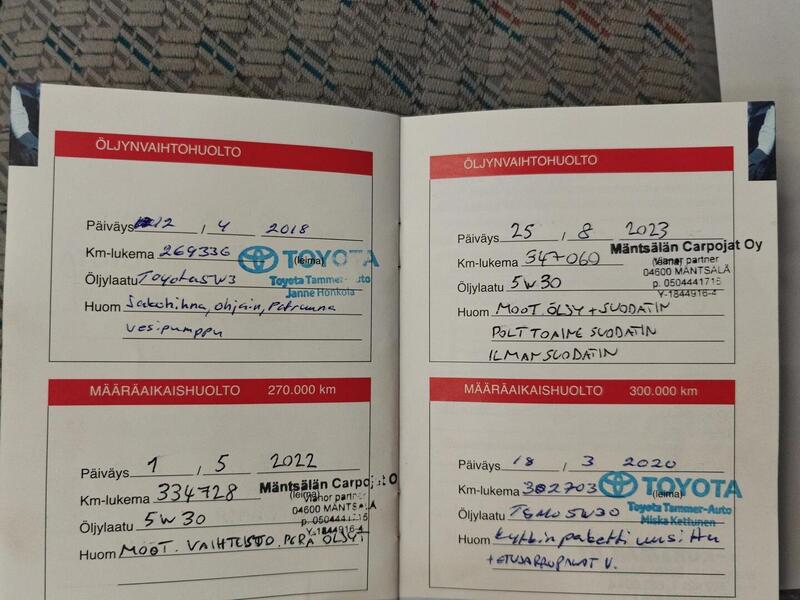 ÖLJYNVAIHTOHUOLTO
Päiväys 12 / 4 2018
Km-lukema 269336
TOYOTA
(leima)
Öljylaatu Toyota 5W3
Toyota Tammer-Auto
Janne Honkola
Huom Jakohihna, ohjain,
vesipumppu
MÄÄRÄAIKAISHUOLTO 270.000 km
Päiväys 1 / 5 2022
Km-lukema 334728
Mäntsälän Carpojat O
(leima)
Vianor partner
04600 MÄNTSÄLÄ
Öljylaatu 5W30
p. 0504441715
Y-1844916-4
Huom MOOT. VAIHTEISTO. PERÄ ÖLJYT
ÖLJYNVAIHTOHUOLTO
Päiväys 25 / 8 2023
Km-lukema 347060
Mäntsälän Carpojat Oy
(leima)
Vianor partner
04600 MÄNTSÄLÄ
Öljylaatu 5W30
p. 0504441715
Y-1844916-4
Huom MOOT. ÖLJY + SUODATIN
POLTTOAINE SUODATIN
ILMANSUODATIN
MÄÄRÄAIKAISHUOLTO 300.000 km
Päiväys 18 / 3 2020
Km-lukema 302703
TOYOTA
(leima)
Öljylaatu 5W30
Toyota Tammer-Auto
Miska Kettunen
Huom Kytkinpaketti uusittu
+ ETUJARRUPALAT U.